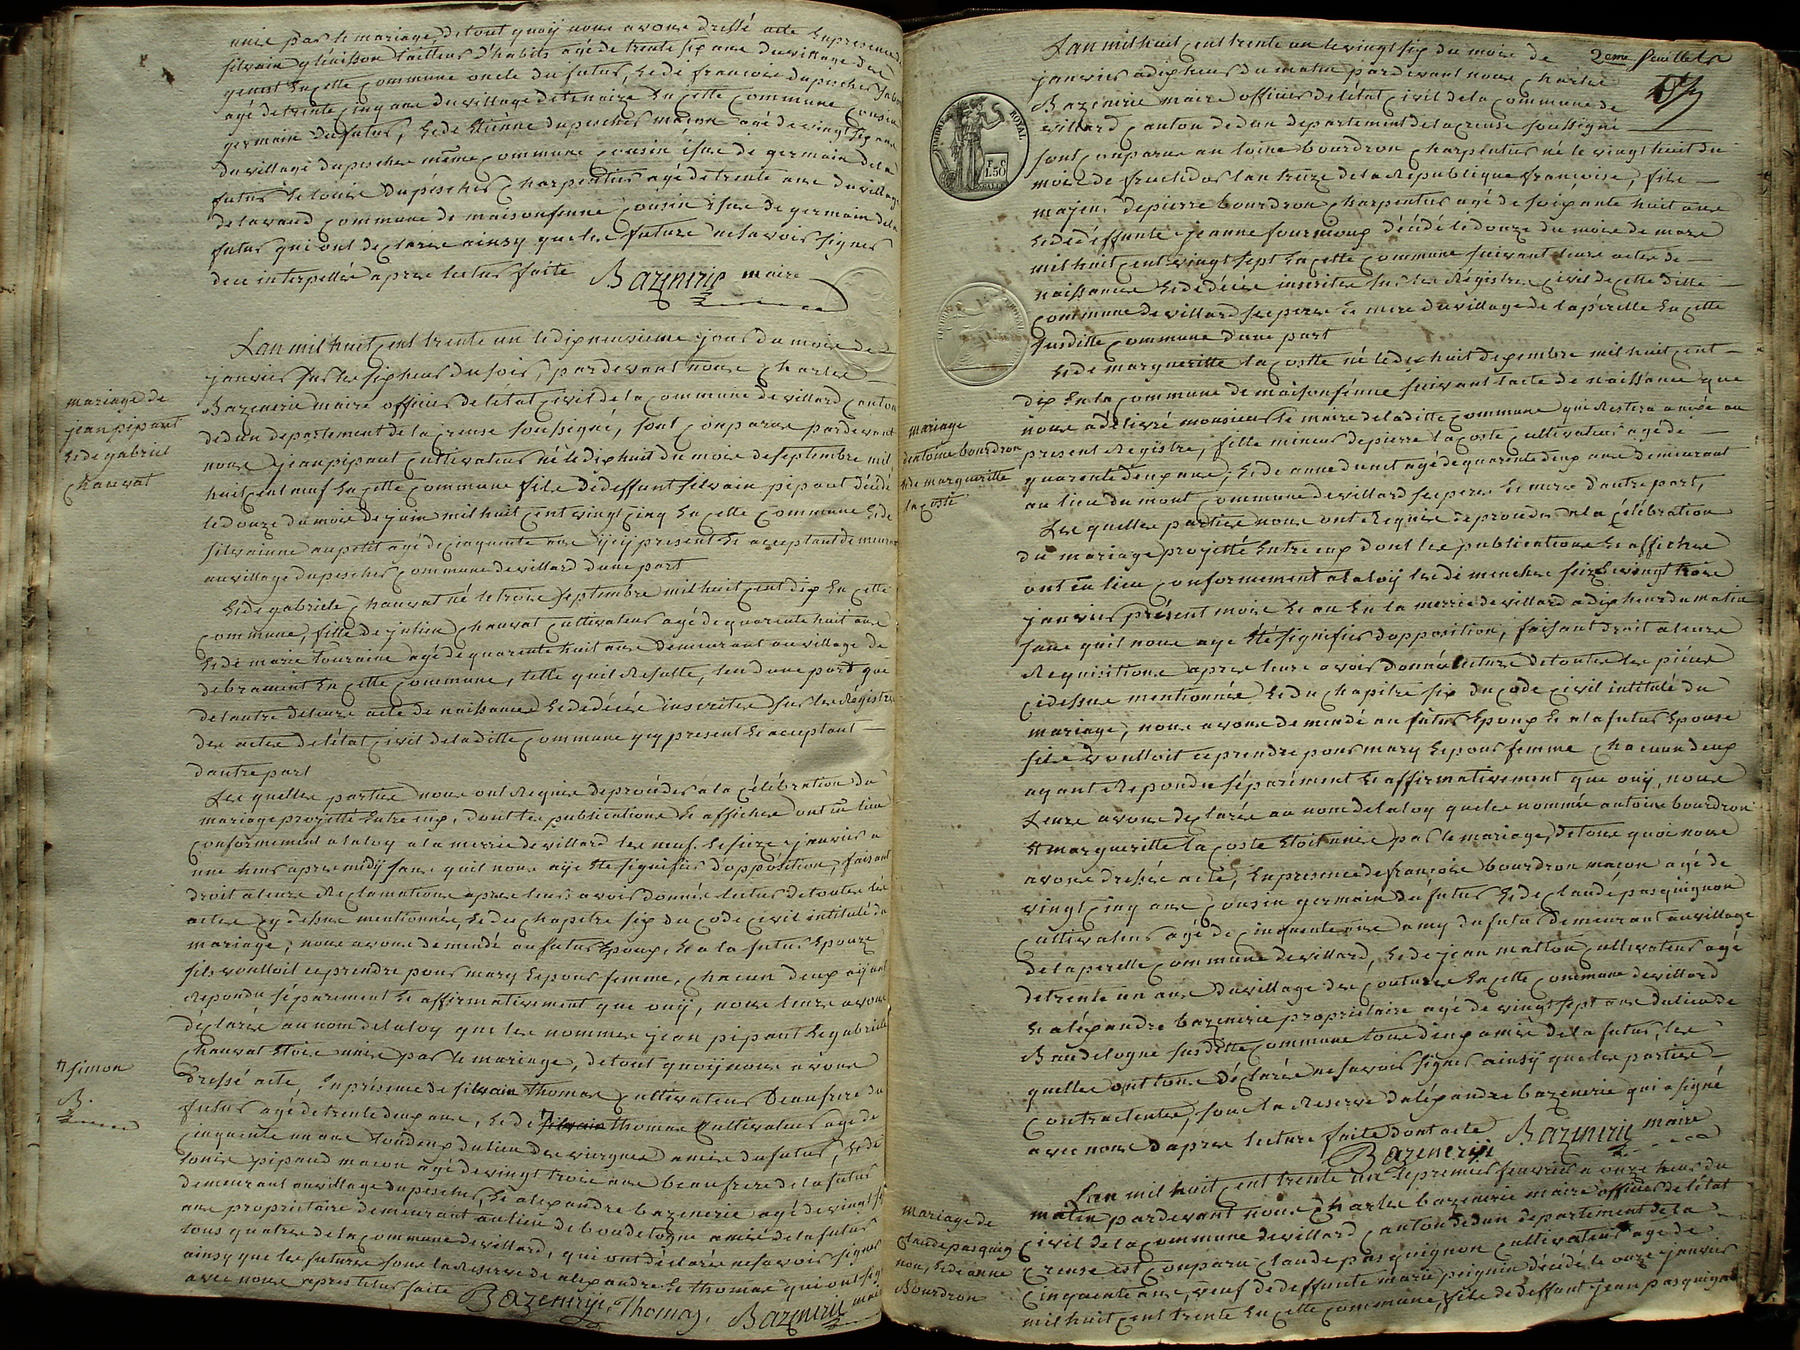 unie par le mariage, de tout quoy nous avons dressé acte En presence de
silvain glénisson tailleur d'habits agé de trente six ans du village de
genest En cette commune oncle du futur, Et de françois dupeicher
agé de trente cinq ans du village de tenaize En cette commune cousin
germain du futur, Et de Etiénne dupescher macon agé de vingt six ans
du village dupescher même commune cousin issue de germain de la
futur Et louis Dupéscher charpentier agé de trente ans du village
de lavaud commune de maisonfenne cousin Issue de germain de la
futur qui ont declarés ainsy que les future ne savoir signer
de ce interpellée apres lectur faite Bazenerie maire
mariage de
jean pipaut
Et de gabriel
chauvat
Lan mil huit cent trente un le dixneuvieme jour du mois de
janvier sur les six heur du soir, par devant nous charles
Bazenerie maire officier de létat civil de la commune de villard canton
de dun departement de la creuse soussigné, sont conparue par devant
nous jean pipaut cultivateur né le dix huit du mois de septembre mil
huit cent neuf En cette commune fils de deffunt silvain pipaut décédé
le douze du mois de juin mil huit cent vingt cinq En cette commune Et de
silvainne aupetit agé de cinquante ans ycy present Et acceptant demeurant
au village dupescher commune de villard dune part
Et de gabriele chauvat né le trois septembre mil huit cent dix En cette
commune, fille de julien chauvat cultivateur agé de quarente huit ans
Et de marie touraine agé de quarente huit ans demeurant au village de
debrament En cette commune, telle quil Resulte, ten d'une part que
de lautre de leurs acte de naissances Et de décés inscrites sur les Régistres
des actes de létat civil de la ditte commune ycy present Et acceptant
dautre part
Les quelles parties nous ont Requis de procéder a la célébration du
mariage projetté Entre eux, dont les publications Et affiches ont Eu lieu
conformement a la loy a la merrie de villard les neuf Et seize janvier a
une heur apres midy sans quil nous aije Eté signifier d'oppósition, faisant
droit a leurs Reclamations apres leurs avoir donnée lectur de toutes les
actes cy dessus mentionnée, Et du chapitre six du code civil intitulé du
mariage, nous avons demendé au futur Epoux, Et a la futur Epouze
sils voulloit ce prendre pour mary Et pour femme, chacun deux aÿant
Repondu séparement Et affirmativement que ouÿ, nous leurs avons
déclarés au nom de la loy que les nommes jean pipaut Et gabrielle
chauvat Etois unis par le mariage, de tout quoij nous avons
dressé acte, En presence de silvain thomas cultivateur Beaufrere du
futur agé de trente deux ans, Et de silvain thomas cultivateur agé de
cinquante un ans tous deux du lieu des vergnes amis du futur, Et de
louis pipaud macon agé de vingt trois ans beaufrere de la futur
demeurant au village dupescher, Et alexandre bazenerie agé de vingt
ans propriétaire demeurant au lieu de baudelogne amis de la futur
tous quatres de la commune de villard, qui ont déclarés ne savoir signer
ainsy que les futures sous la Reserve de alexandre Et thomas qui ont signé
avec nous apres lectur faite Bazenerije Thomas. Bazenerie maire
simon
B.
2eme feuillet
TIMBRE ROYAL
F. C
1.50
Lan mil huit cent trente un le vingt six du mois de
janvier a dix heur du matin par devant nous charles
Bazenerie maire officier de létat civil de la commune de
villard canton de dun departement de la creuse soussigné
sont conparue antoine bourdron charpentier né le vingt huit du
mois de fructidor lan treize de la Republique françoise, fils
majeur de pierre bourdron charpentier agé de soixante huit ans
Et de déffunte jeanne fourmoux décédé le douze du mois de mars
mil huit cent vingt sept En cette commune suivant leurs actes de
naissances Et de décés inscrites sur les Régistres civil de cette ditte
commune de villard ses peres Et mere du village de lapérelle En cette
susditte commune dune part
mariage
dantoine bourdron
Et de margueritte
la coste
Et de margueritte la costte né le dix huit decembre mil huit cent
dix En la commune de maisonfénne suivant lacte de naissance que
nous a délivré monsieur le maire de la ditte commune qui Restera anéxé au
present Registre, fille mineur de pierre la coste cultivateur agé de
quarente deux ans, Et de anne dunet agé de quarente deux ans demeurant
au lieu du mont commune de villard ses peres Et mere d'autre part,
Les quelles parties nous ont Requis de procéder a la célébration
du mariage projetté Entre eux dont les publications Et affiches
ont Eu lieu conformement a la loij les dimenches seize Et vingt trois
janvier présent mois Et an En la merrie de villard a dix heur du matin
sans quil nous aye Eté signifier d'opposition, faisant droit a leurs
Requisitions apres leurs avoir donnée lecture de toutes les piéces
cidessus mentionnée Et du chapitre six du code civil intitulé du
mariage, nous avons demendé au futur Epoux Et a la futur Epouse
sils voulloit ce prendre pour mary Et pour femme chacun deux
ayant Repondu séparément Et affirmativement que ouij, nous
Leurs avons déclarée au nom de la loy que les nommés antoine bourdron
Et margueritte la coste Etoit unis par le mariage, De tous quoi nous
avons dressée acte, En presence de françois bourdron macon agé de
vingt cinq ans cousin germain du futur Et de claude pasquignon
cultivateur agé de cinquente ans amy du futur demeurant au village
de laperelle commune de villard, Et de jean malton cultivateur agé
de trente un ans du village des coutures En cette commune de villard
Et aléxandre bazenerie proprietaire agé de vingt sept ans du lieu de
Baudelogne susditte commune tous deux amis de la futur, les
quelles ont tous déclarés ne savoir signer ainsij que les parties
contractantes, sous la Reserve d'aléxandre bazenerie qui a signé
avec nous d'apres lecture faite dont acte Bazenerie maire
Bazenerije
mariage de
claude pasquig
non, Et de anne
Bourdron
Lan mil huit cent trente un le premier fevrier a onze heur du
matin par devant nous charles bazenerie maire officier de létat
civil de la commune de villard canton de dun departement de la
creuse est conparu claude pasquignon cultivateur agé de
cinquente ans, veuf de deffunte marie peignin décédé le onze janvier
mil huit cent trente En cette commune, fils de deffunt jean pasquignon